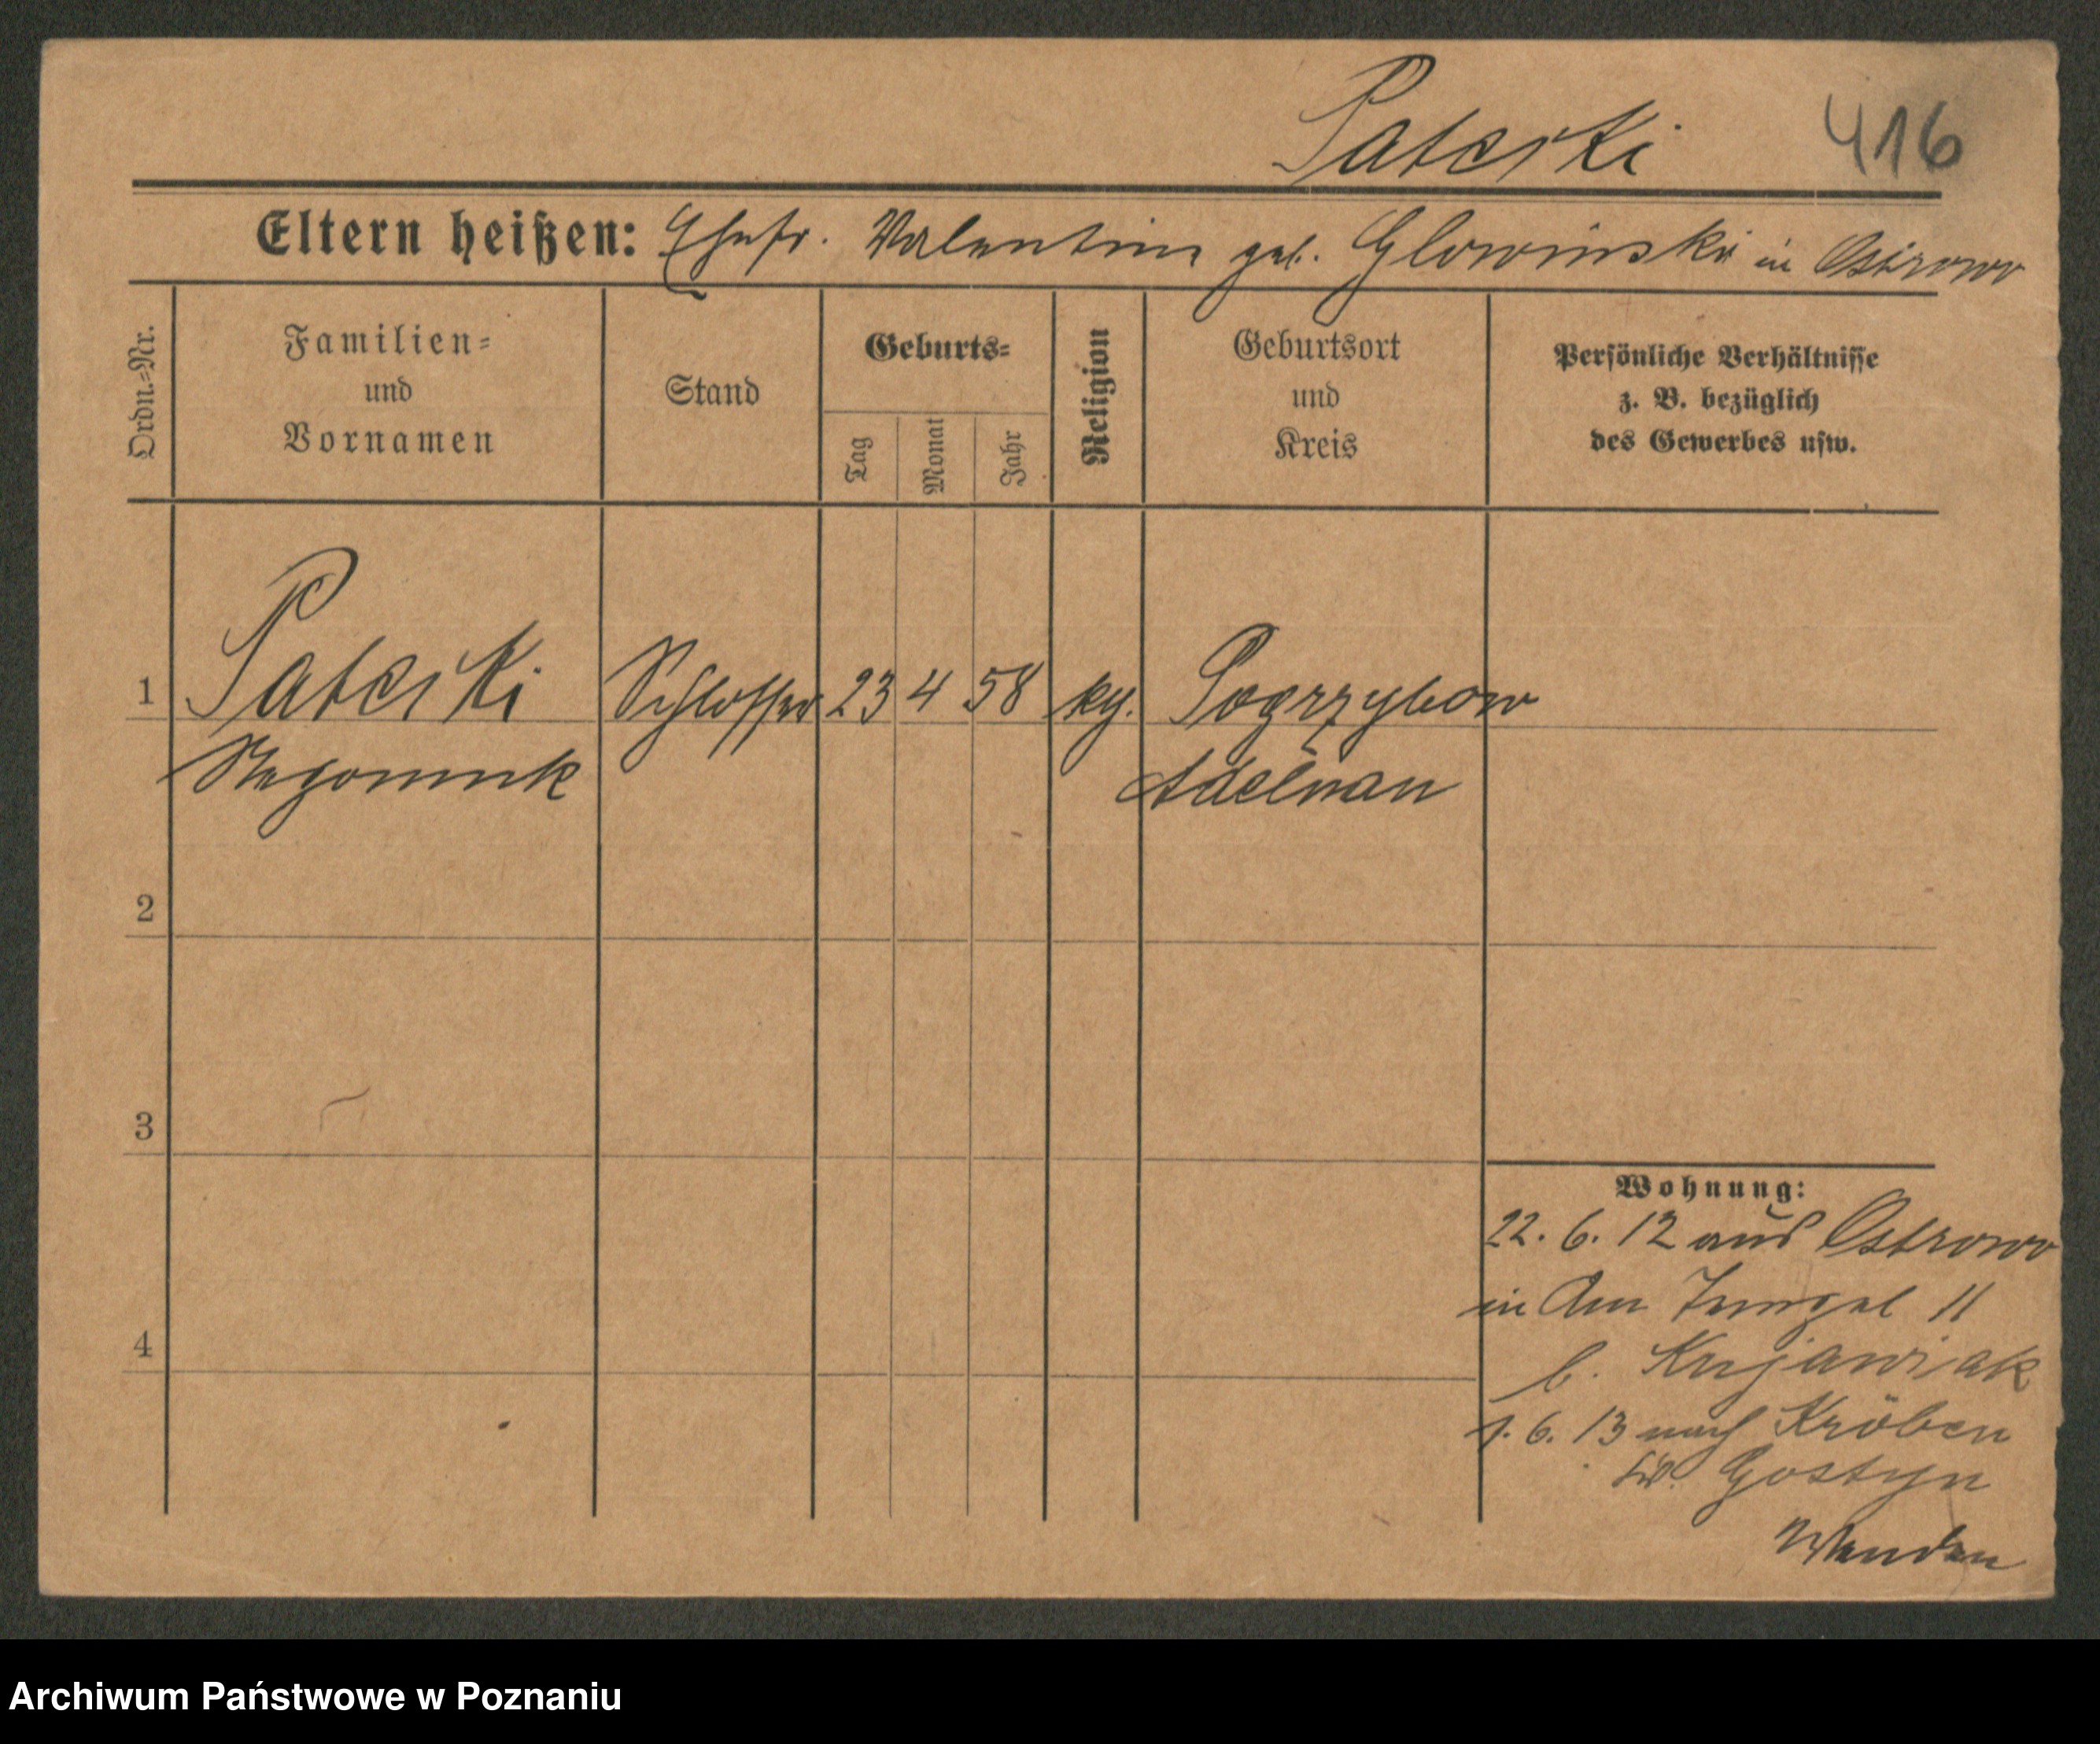 Paterki
416
Eltern heißen: Ehefr. Valentine geb. Glowinski in Ostrowo
Ordn.=Nr.
Familien=
und
Vornamen
Stand
Geburts=
Tag
Monat
Jahr
Religion
Geburtsort
und
Kreis
Persönliche Verhältnisse
z. B. bezüglich
des Gewerbes usw.
1 Paterki Schlosser 23 4 58 Pogrzybow
Adelnau
2
3
4
Wohnung:
22. 6. 12 aus Ostrowo
in Am 11
b. Kujawiak
1. 6. 13 nach Kröben
Gostyn
Wenden
Archiwum Państwowe w Poznaniu